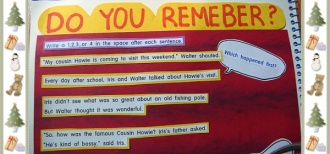 DO YOU REMEBER?
Write a 1 2 3 or 4 in the space after each sentence.
"My cousin Howie is coming to visit this weekend." Walter shouted.
Which happened first?
Every day after school, Iris and Walter talked about Howie's visit.
Iris didn't see what was so great about an old fishing pole.
But Walter thought it was wonderful.
"So, how was the famous Cousin Howie? Iris's father asked.
"He's kind of bossy." said Iris.